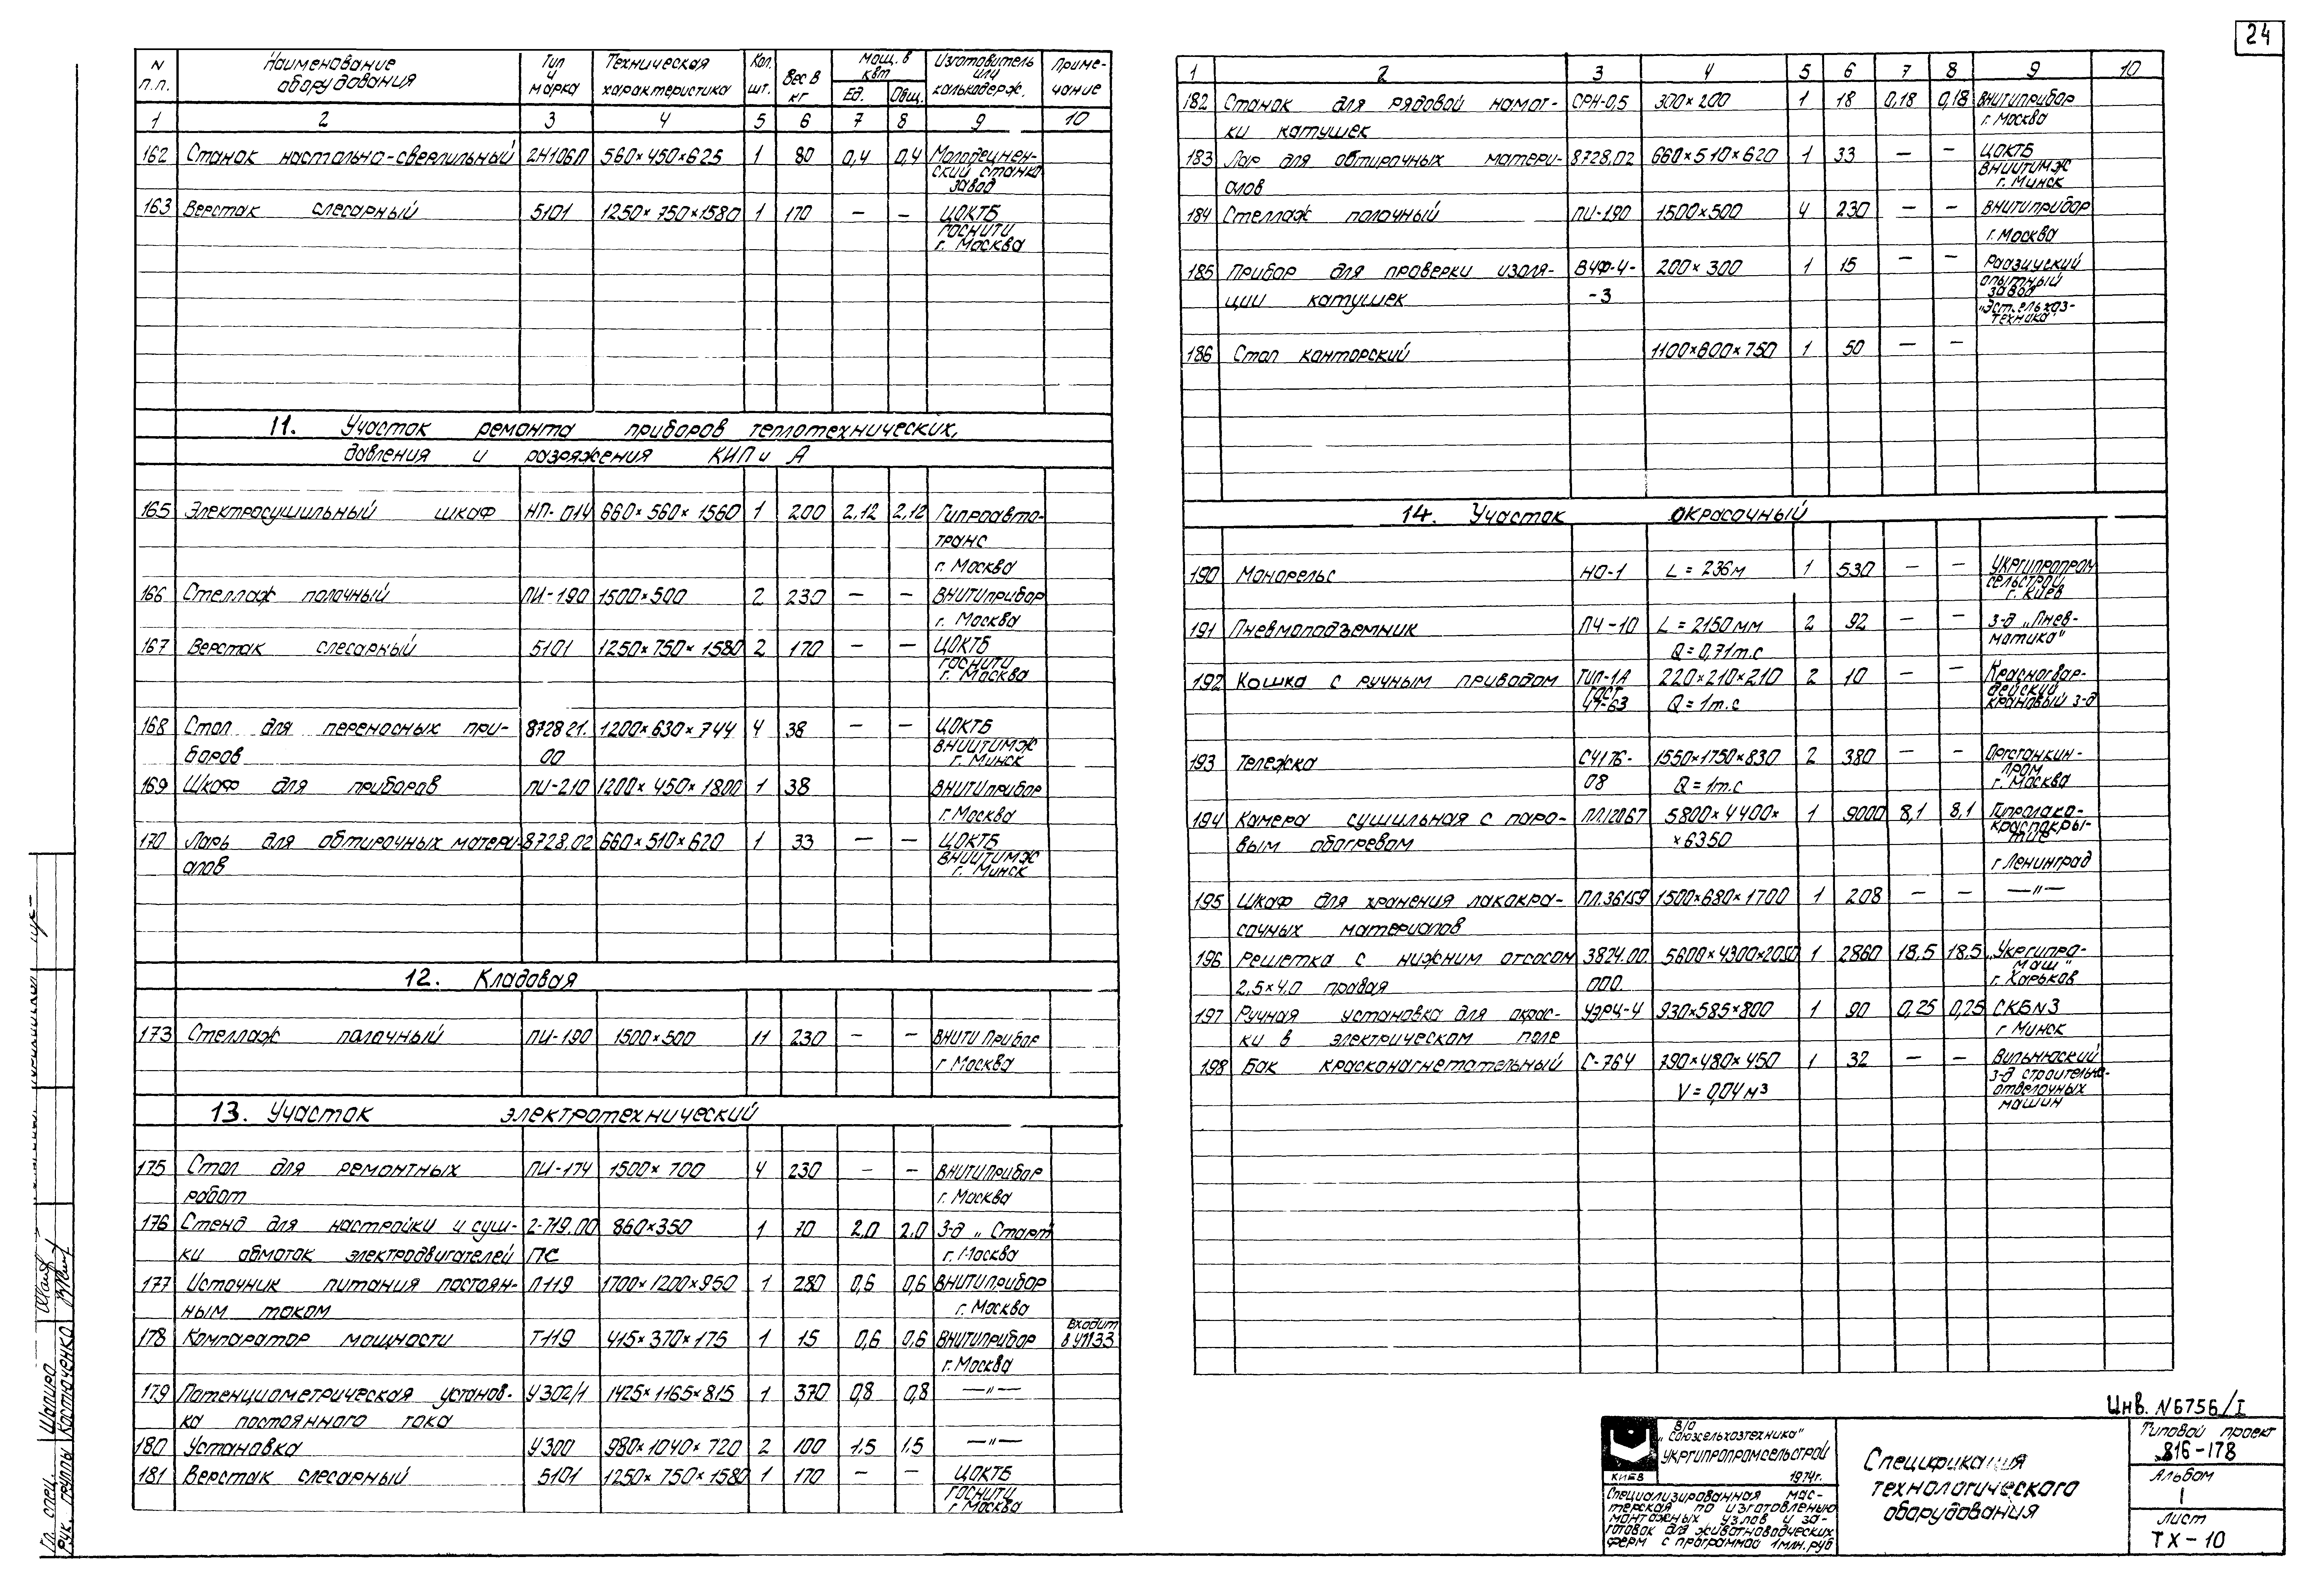 24
N п.п. Наименование оборудования Тип и марка Техническая характеристика Кол. шт. Вес в кг Мощ. в квт Ед. Общ. Изготовитель или калькодерж. Приме- чание
1 2 3 4 5 6 7 8 9 10
162 Станок настольно-сверлильный 2Н106П 560×450×625 1 80 0,4 0,4 Молодечнен-
ский станко
завод
163 Верстак слесарный 5101 1250×750×1580 1 170 — — ЦОКТБ
ГОСНИТИ
г. Москва
11. Участок ремонта приборов теплотехнических,
давления и разряжения КИП и А
165 Электросушильный шкаф НП-014 860×560×1560 1 200 2,12 2,12 Гипроавто-
транс
г. Москва
166 Стеллаж полочный ПИ-190 1500×500 2 230 — — ВНИТИприбор
г. Москва
167 Верстак слесарный 5101 1250×750×1580 2 170 — — ЦОКТБ
ГОСНИТИ
г. Москва
168 Стол для переносных при- 8728 21. 1200×630×744 4 38 — — ЦОКТБ
боров 00 ВНИИТИМЖ
г. Минск
169 Шкаф для приборов ПИ-210 1200×450×1800 1 38 ВНИТИприбор
г. Москва
170 Ларь для обтирочных матери- 8728.02 660×510×620 1 33 — — ЦОКТБ
алов ВНИИТИМЖ
г. Минск
12. Кладовая
173 Стеллаж полочный ПИ-190 1500×500 11 230 — — ВНИТИ Прибор
г Москва
13. Участок электротехнический
175 Стол для ремонтных ПИ-174 1500×700 4 230 — — ВНИТИприбор
работ г. Москва
176 Стенд для настройки и суш- 2-719.00 860×350 1 70 2.0 2.0 З-д „Старт"
ки обмоток электродвигателей ПС г. Москва
177 Источник питания постоян- П119 1700×1200×950 1 280 0,6 0,6 ВНИТИприбор
ным током г. Москва
178 Компаратор мощности Т119 415×370×175 1 15 0,6 0,6 ВНИТИприбор Входит в У1133
г. Москва
179 Потенциометрическая установ- У302/1 1425×1165×815 1 370 0,8 0,8 —"—
ка постоянного тока
180 Установка У300 980×1040×720 2 100 1.5 1.5 —"—
181 Верстак слесарный 5101 1250×750×1580 1 170 — — ЦОКТБ
ГОСНИТИ
г Москва
1 2 3 4 5 6 7 8 9 10
182 Станок для рядовой намот- СРН-0,5 300×200 1 18 0,18 0,18 ВНИТИприбор
ки катушек г. Москва
183 Лар для обтирочных матери- 8728.02 660×510×620 1 33 — — ЦОКТБ
алов ВНИИТИМЖ
г. Минск
184 Стеллаж полочный ПИ-190 1500×500 4 230 — — ВНИТИприбор
г. Москва
185 Прибор для проверки изоля- ВЧФ-4- 200×300 1 15 — —
ции катушек -3 опытный
завод
„Эст.сельхоз-
техника"
186 Стол конторский 1100×800×750 1 50 — —
14. Участок окрасочный
190 Монорельс НО-1 L = 236м 1 530 — — Укргипропром
сельстрой
г. Киев
191 Пневмоподъемник ПЧ-10 L = 2150мм 2 92 — — З-д „Пнев-
Q = 0,71т.с матика"
192 Кошка с ручным приводом Тип-1А 220×210×210 2 10 — — Красногвар-
ГОСТ дейский
47-63 Q = 1т.с крановый з-д
193 Тележка С4176- 1550×1750×830 2 380 — — Оргстанкин-
08 Q = 1т.с пром
г. Москва
194 Камера сушильная с паро- ПЛ12067 5800×4400× 1 9000 8,1 8,1 Гипролако-
вым обогревом ×6350 краспокры-
тие
г Ленинград
195 Шкаф для хранения лакокра- ПЛ.36159 1500×680×1700 1 208 — — —"—
сочных материалов
196 Решетка с нижним отсосом 3824.00 5600×4300×2050 1 2860 18,5 18,5 „Укргипро-
2,5×4,0 правая 000 маш"
г. Харьков
197 Ручная установка для окрас- УЭРЦ-4 930×585×800 1 90 0,25 0,25 СКБ N3
ки в электрическом поле г Минск
198 Бак красконагнетательный С-764 790×480×450 1 32 — — Вильнюский
V = 0,04 м³ з-д строительно-
отделочных
машин
Инв. N6756/I
В/О „Союзсельхозтехника"
УКРГИПРОПРОМСЕЛЬСТРОЙ
КИЕВ 1974г.
Специализированная мас-
терская по изготовлению
монтажных узлов и за-
готовок для животноводческих
ферм с программой 1 млн. руб
Спецификация
технологического
оборудования
Типовой проект
816-178
Альбом
I
Лист
ТХ-10
Гл. спец. Шапиро
Рук. группы Костюченко